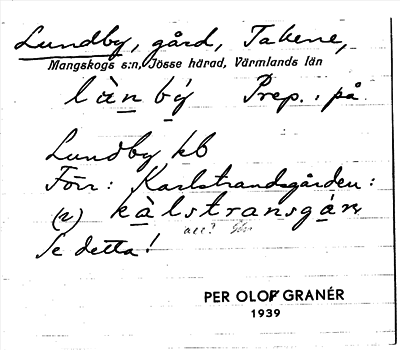 Lundby, gård, Takene,
Mangskogs s:n, Jösse härad, Värmlands län
là̱n bý̱ Prep.: på
Lundby kb
Förr: Karlstrandsgården:
(2) kà̱lstransgá̱ṉ
acc?
Se detta!
PER OLOF GRANÉR
1939